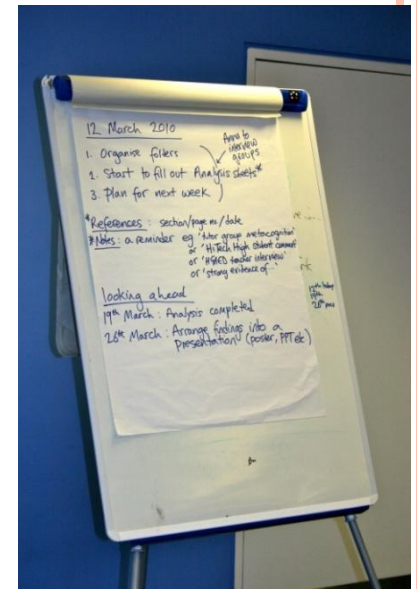 12 March 2010
1. Organise folders
2. Start to fill out Analysis sheets*
3. Plan for next week
Anna to
interview
groups
*References: section/page no/date
*Notes: a reminder eg 'tutor group metacognition'
or 'HiTech High student comment'
or 'teacher interview'
or 'strong evidence of...'
looking ahead
19th March: Analysis completed
26th March: Arrange findings into a
presentation (poster, PPT etc)